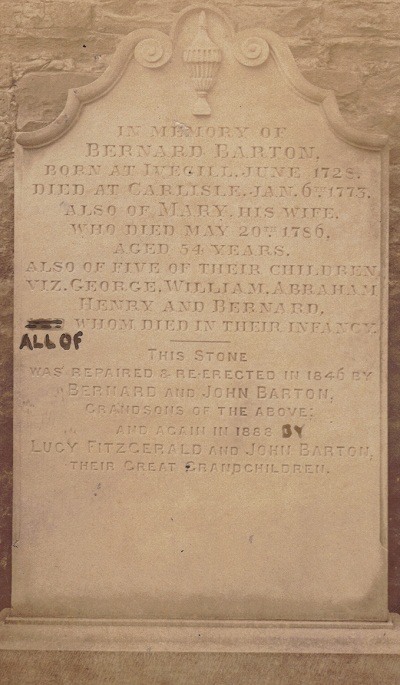 IN MEMORY OF
BERNARD BARTON,
BORN AT IVEGILL, JUNE 1728.
DIED AT CARLISLE, JAN. 6TH 1773.
ALSO OF MARY, HIS WIFE,
WHO DIED MAY 20TH 1786,
AGED 54 YEARS.
ALSO OF FIVE OF THEIR CHILDREN
VIZ. GEORGE, WILLIAM, ABRAHAM
HENRY AND BERNARD,
ALL OF WHOM DIED IN THEIR INFANCY.
THIS STONE
WAS REPAIRED & RE-ERECTED IN 1846 BY
BERNARD AND JOHN BARTON,
GRANDSONS OF THE ABOVE:
AND AGAIN IN 1888 BY
LUCY FITZGERALD AND JOHN BARTON,
THEIR GREAT GRANDCHILDREN.